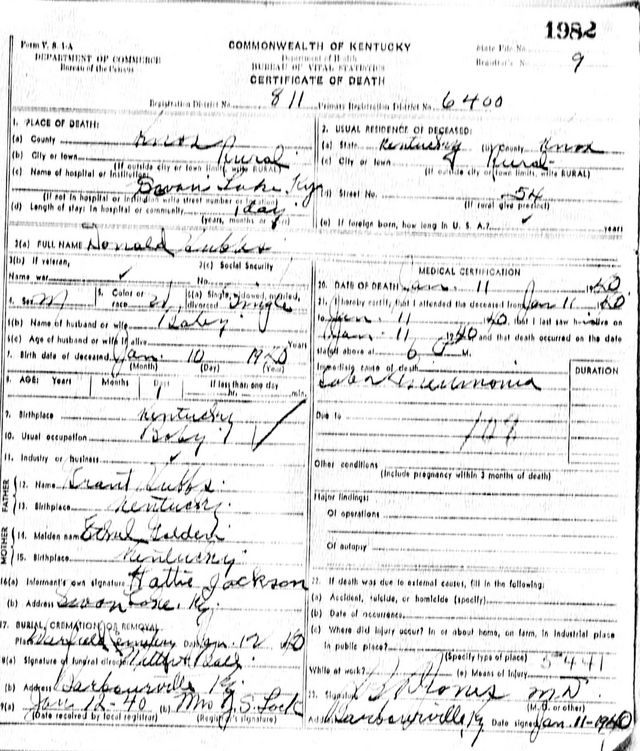 1982
Form V. S. 1-A
DEPARTMENT OF COMMERCE
Bureau of the Census
COMMONWEALTH OF KENTUCKY
Department of Health
BUREAU OF VITAL STATISTICS
CERTIFICATE OF DEATH
State File No.
Registrar's No. 9
Registration District No. 811 Primary Registration District No. 6400
1. PLACE OF DEATH:
(a) County Knox
(b) City or town Rural
(If outside city or town limits, write RURAL)
(c) Name of hospital or institution:
Swan Lake, Ky
(If not in hospital or institution write street number or location)
(d) Length of stay: In hospital or community 1 day
(years, months or days)
2. USUAL RESIDENCE OF DECEASED:
(a) State Kentucky (b) County Knox
(c) City or town Rural
(If outside city or town limits, write RURAL)
(d) Street No. 54
(If rural give precinct)
(e) If foreign born, how long in U. S. A.? years
3(a) FULL NAME Donald Hubbs
3(b) If veteran,
Name war
3(c) Social Security
No.
4. Sex M 5. Color or race W 6(a) Single, widowed, married, divorced Single
6(b) Name of husband or wife Baby
6(c) Age of husband or wife if alive Years
7. Birth date of deceased Jan 10 1940
(Month) (Day) (Year)
8. AGE: Years Months Days If less than one day
1 hr. min.
9. Birthplace Kentucky
10. Usual occupation Baby
11. Industry or business
FATHER
12. Name Grant Hubbs
13. Birthplace Kentucky
MOTHER
14. Maiden name Ethel Golden
15. Birthplace Kentucky
16(a) Informant's own signature Hattie Jackson
(b) Address Swan Lake, Ky.
17. BURIAL, CREMATION OR REMOVAL
Place Cemetery Date Jan. 12 40
18(a) Signature of funeral director
(b) Address Barbourville Ky.
19(a) Jan 12-40 (b) Mrs J. S. Lock
(Date received by local registrar) (Registrar's signature)
MEDICAL CERTIFICATION
20. DATE OF DEATH Jan. 11 1940
21. I hereby certify, that I attended the deceased from Jan 11 1940
to Jan. 11 1940, that I last saw him alive on
Jan. 11 1940 and that death occurred on the date
stated above at 6 M.
Immediate cause of death DURATION
Lobar Pneumonia
Due to
108
Other conditions
(Include pregnancy within 3 months of death)
Major findings:
Of operations
Of autopsy
22. If death was due to external causes, fill in the following:
(a) Accident, suicide, or homicide (specify)
(b) Date of occurrence
(c) Where did injury occur? In or about home, on farm, in industrial place
In public place?
(Specify type of place) 5441
While at work? (e) Means of injury
23. Signature M.D.
(M.D. or other)
Address Barbourville, Ky Date signed Jan. 11-1940